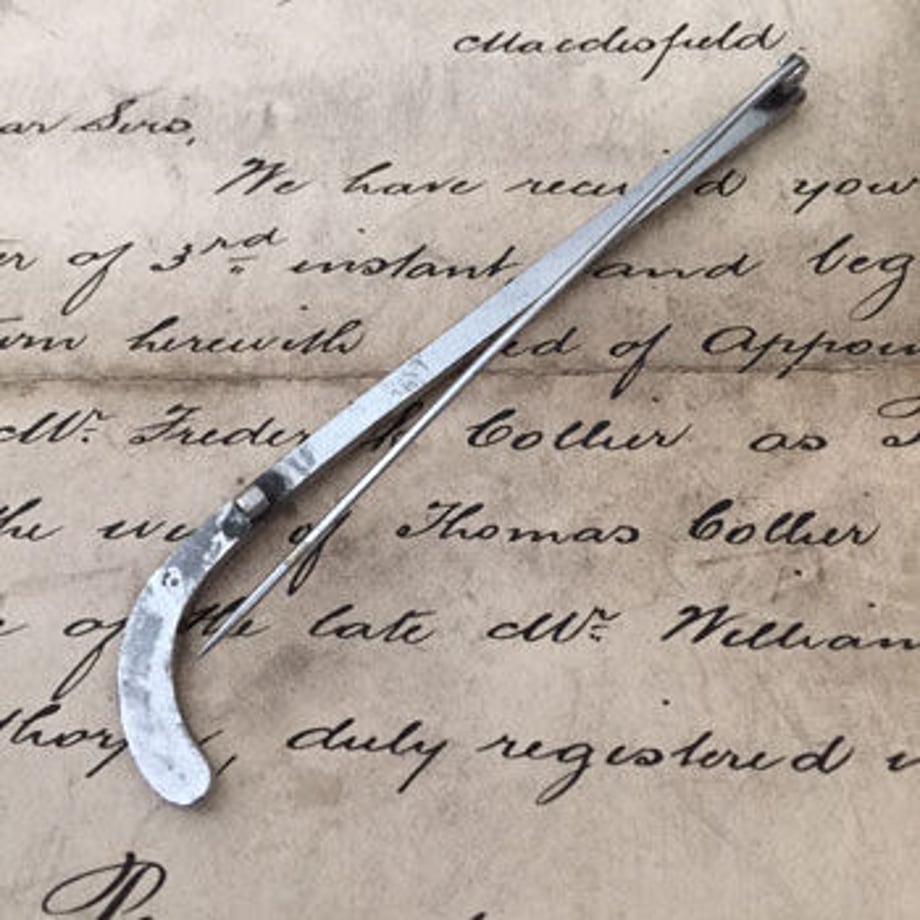 Macclesfield.
ar Sirs,
We have recei d your
er of 3rd instant, and beg
urn herewith ed of Appoin
Mr. Freder k Collier as T
the wi of Thomas Collier
e of the late Mr. William
thorp , duly registered